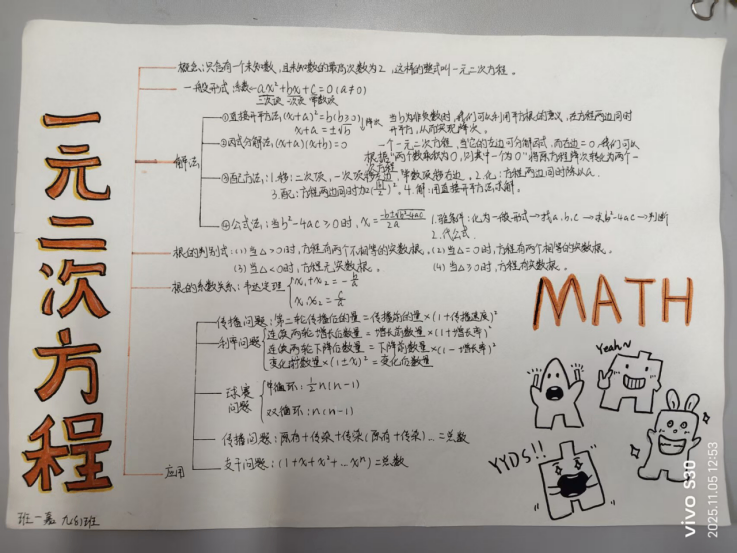 一元二次方程
概念:只含有一个未知数,且未知数的最高次数为2,这样的整式叫一元二次方程。
一般形式:ax²+bx+c=0(a≠0)
二次项 一次项 常数项
解法
①直接开平方法:(x+a)²=b(b≥0) 降次 当b为非负数时,我们可以利用平方根的意义,在方程两边同时
x+a=±√b 开平方,从而实现降次。
②因式分解法:(x+a)(x+b)=0 一个一元二次方程,当它的左边可分解因式,而右边=0,我们可以
根据"两个数乘积为0,则其中一个为0"将原方程降次转化为两个一
次方程
③配方法:1.移:二次项,一次项移左边,常数项移右边。2.化:方程两边同时除以a.
3.配:方程两边同时加()². 4.解:用直接开平方法求解。
④公式法:当b²-4ac≥0时,x=-b±√b²-4ac/2a 1.验条件:化为一般形式→找a.b.c→求b²-4ac→判断
2.代公式
根的判别式:(1)当△>0时,方程有两个不相等的实数根。(2)当△=0时,方程有两个相等的实数根。
(3)当△<0时,方程无实数根。 (4)当△≥0时,方程有实数根。
根的系数关系:韦达定理 x₁+x₂=-b/a
x₁x₂=c/a
应用
传播问题:第二轮传播后的量=传播前的量×(1+传播速度)²
利率问题
连续两轮增长后数量=增长前数量×(1+增长率)²
连续两轮下降后数量=下降前数量×(1-增长率)²
变化前数量×(1±x)²=变化后数量
球赛问题
单循环:½n(n-1)
双循环:n(n-1)
传播问题:原存+传染+传染(原存+传染)…=总数
支干问题:(1+x+x²+…xⁿ)=总数
MATH
Yeah~
YYDS!!
班一嘉 九(6)班
vivo S30
2025.11.05 12:53